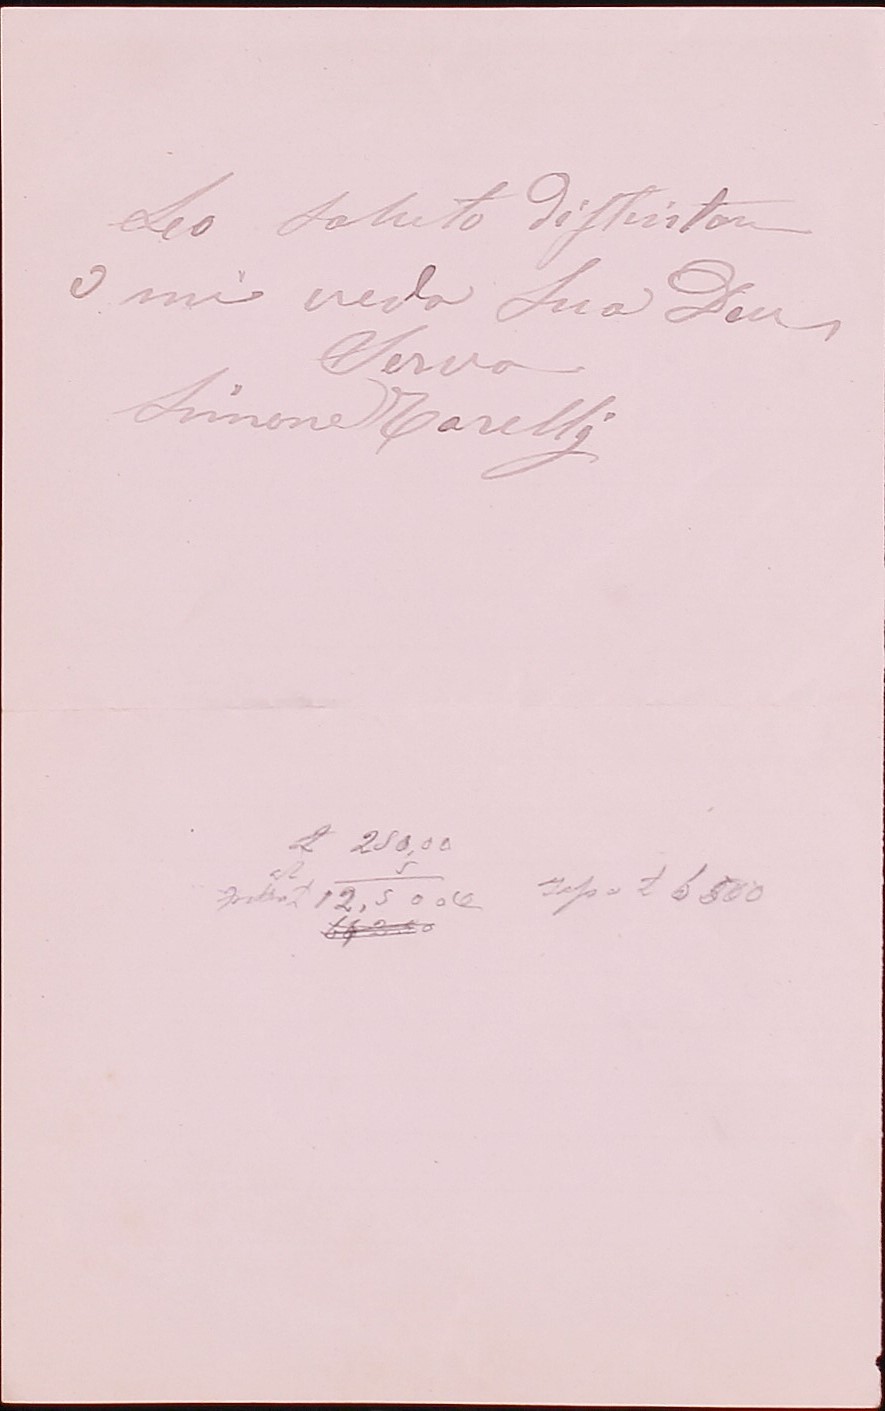 Leo saluto distintam
e mi creda Sua Dev
Serva
Simone Carelli
£ 250,00
5
12,5000
£ 6500